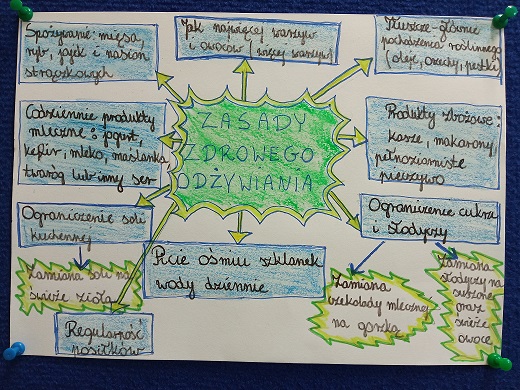 Spożywanie: mięsa,
ryb, jajek i nasion
strączkowych
Jak najwięcej warzyw
i owoców (więcej warzyw)
Tłuszcze - głównie
pochodzenia roślinnego
(oleje, orzechy, pestki)
Codziennie produkty
mleczne: jogurt,
kefir, mleko, maślanka
twaróg lub inny ser
ZASADY
ZDROWEGO
ODŻYWIANIA
Produkty zbożowe:
kasze, makarony,
pełnoziarniste
pieczywo
Ograniczenie soli
kuchennej
Ograniczenie cukru
i słodyczy
Zamiana soli na
świeże zioła
Picie ośmiu szklanek
wody dziennie
Zamiana
czekolady mlecznej
na gorzką
Zamiana
słodyczy na
suszone
oraz
świeże
owoce
Regularność
posiłków